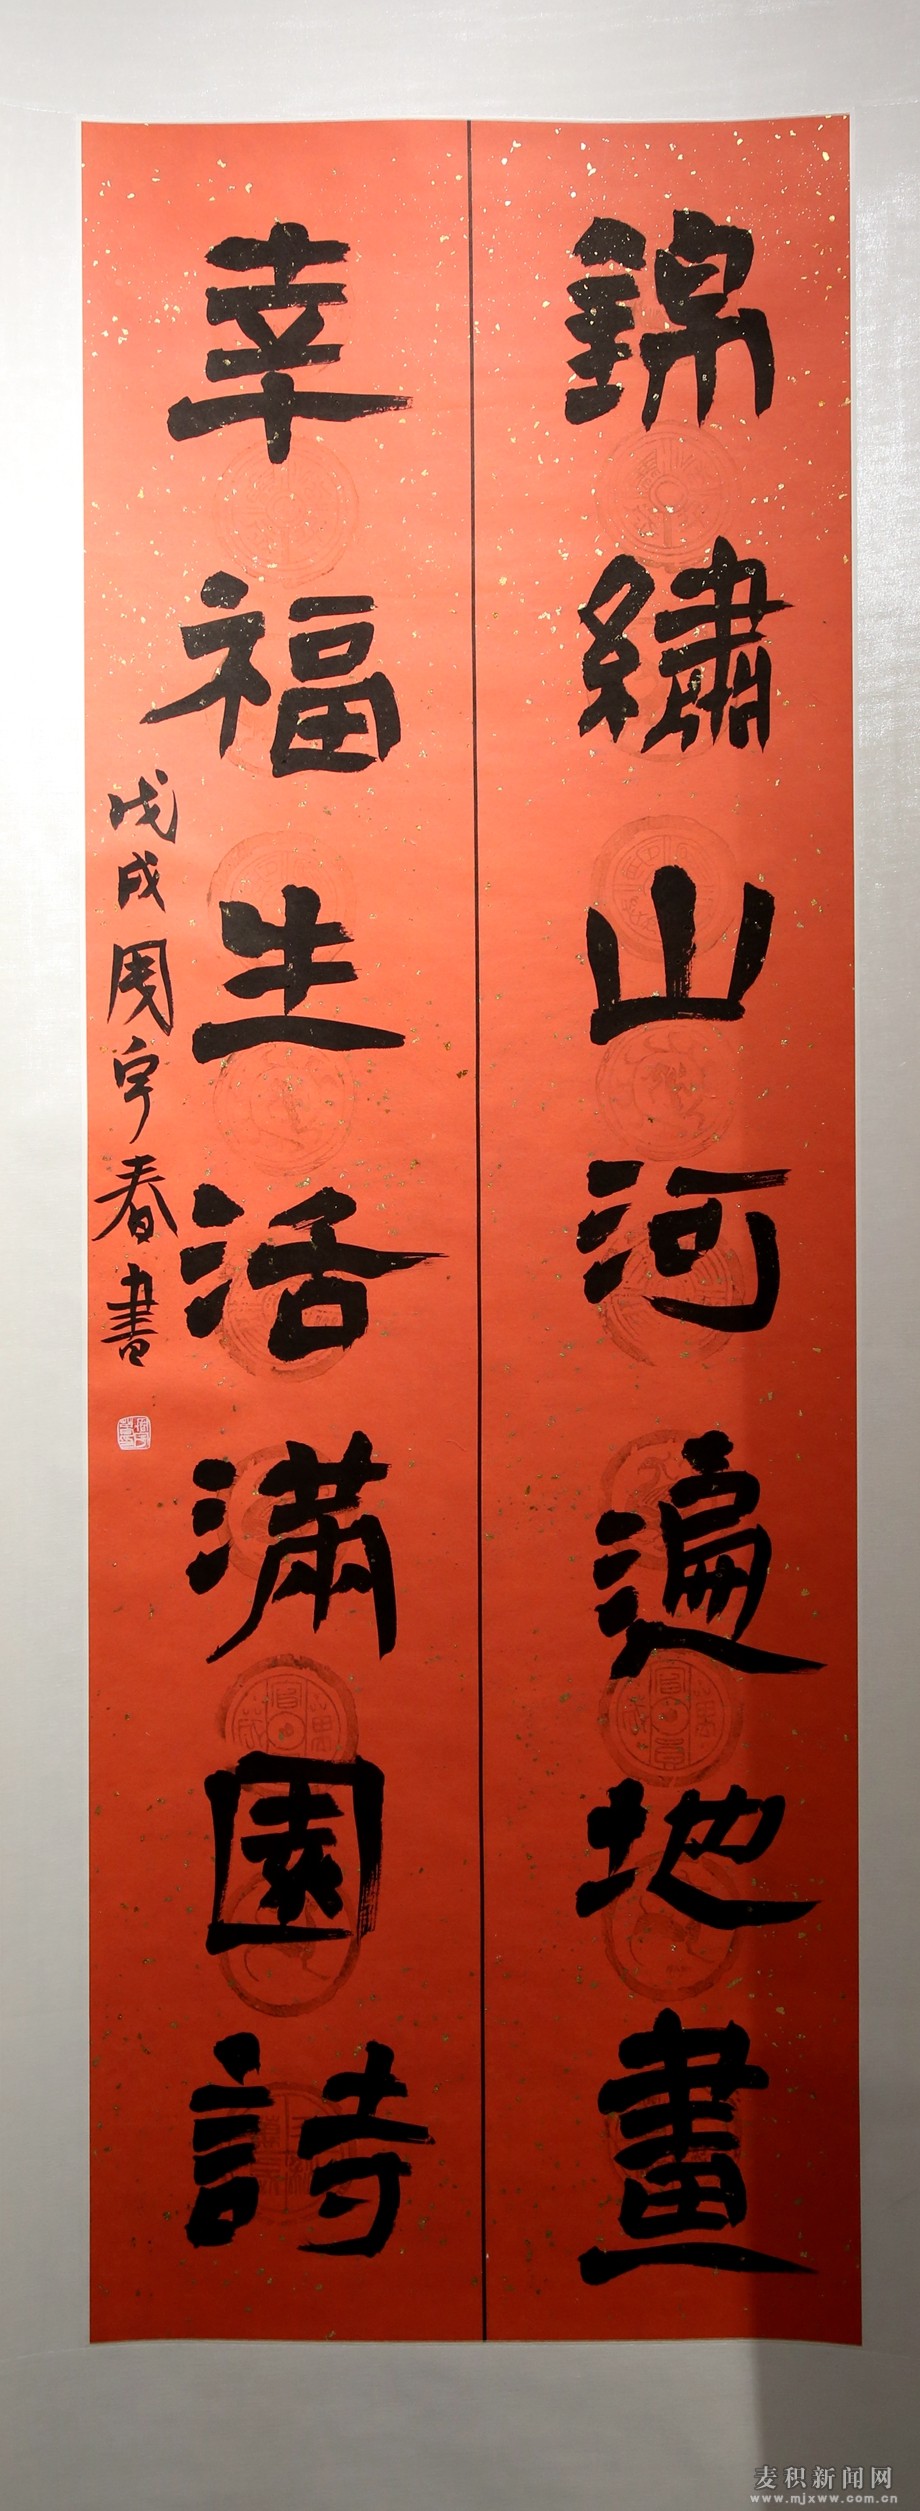 錦繡山河遍地畫
幸福生活滿園詩
戊戌周宇春書
麦积新闻网
www.mjxww.com.cn